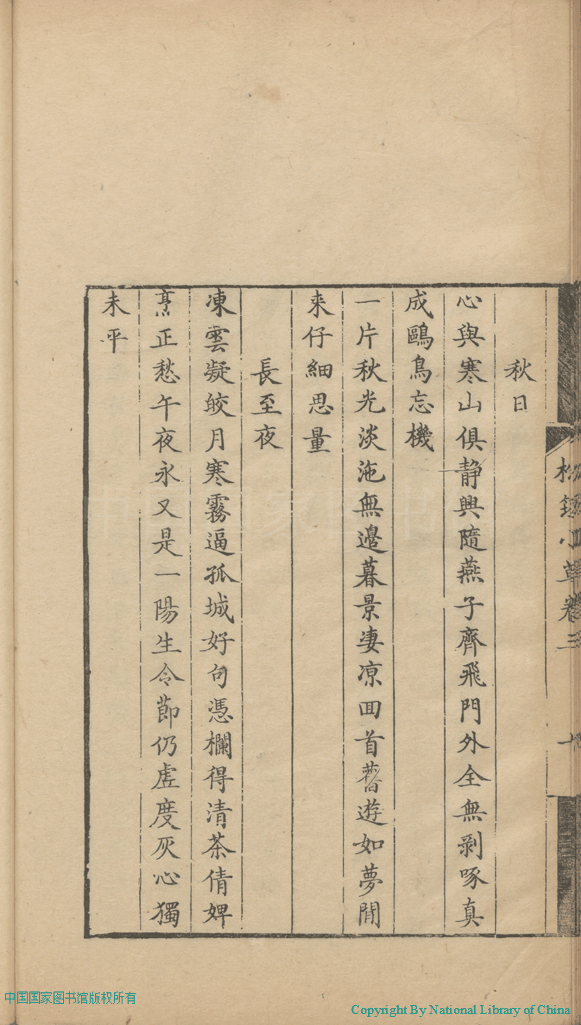 松□小草卷三
秋日
心與寒山俱静興隨燕子齊飛門外全無剝啄真
成鷗鳥忘機
一片秋光淡沲無邉暮景淒凉囬首舊遊如夢閒
来仔細思量
長至夜
凍雲凝皎月寒霧逼孤城好句憑欄得清茶倩婢
烹正愁午夜永又是一陽生令節仍虗度灰心獨
未平
中国国家图书馆版权所有
Copyright By National Library of China